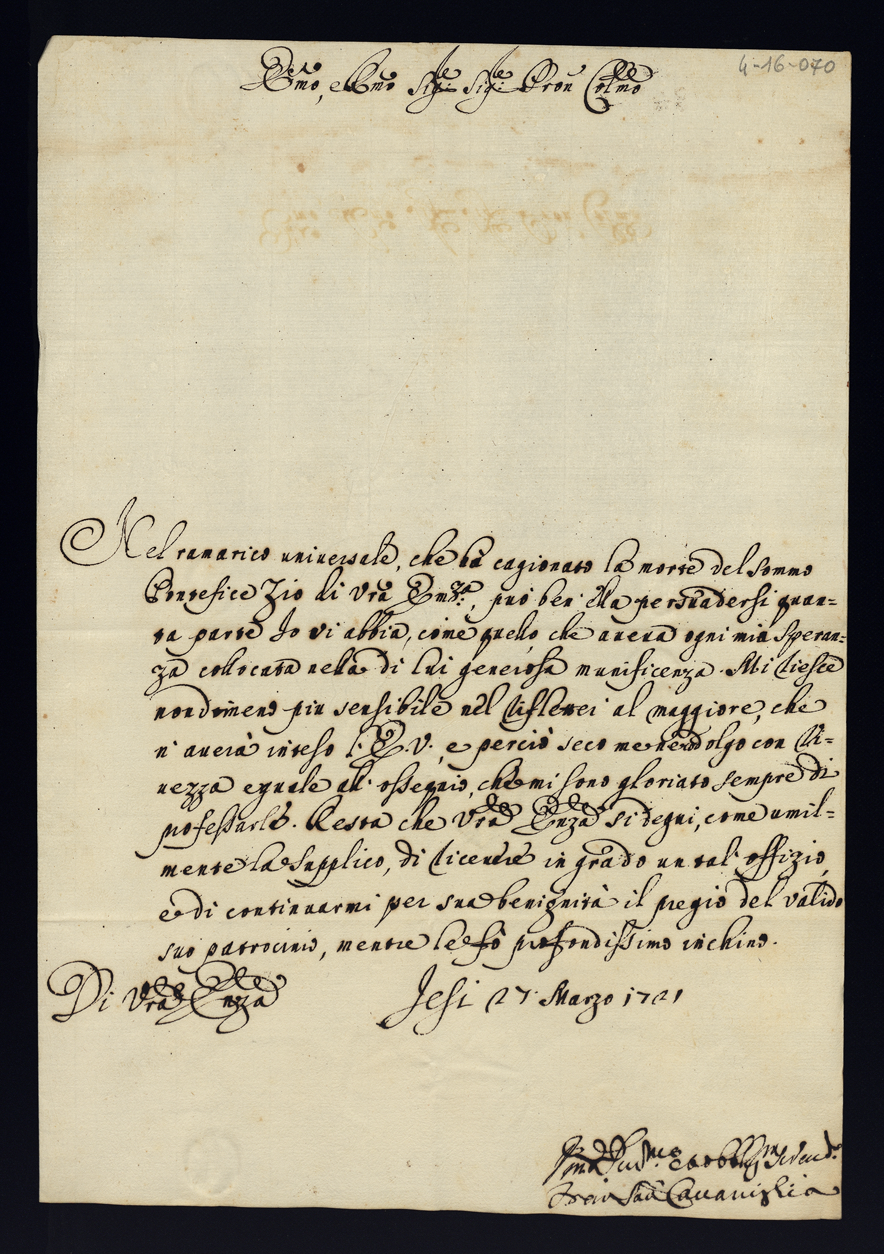 4-16-070
Emo, e Rmo Sig.re Sig.re Pron Colmo
Nel ramarico universale, che hà cagionato la morte del sommo
Pontefice Zio di Vrã Emza, può ben ella persuadersi quan=
ta parte Io vi abbia, come quello che aveva ogni mia speran=
za collocata nella di lui generosa munificenza. Mi riesce
nondimeno più sensibile nel riflettei al maggiore, che
n'averà inteso l'E.V., e perciò seco me ne dolgo con vi=
vezza eguale all'ossequio, che mi sono gloriato sempre di
professarle. Resta che Vrã Enza si degni, come umil=
mente la supplico, di ricevere in grado un tal offizio,
e di continuarmi per sua benignità il pregio del valido
suo patrocinio, mentre le fò profondissimo inchino.
Di Vrã Enza Jesi 27 Marzo 1721
Cavaniglia